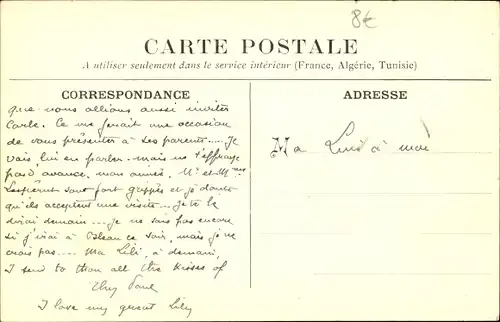 8€
CARTE POSTALE
A utiliser seulement dans le service intérieur (France, Algérie, Tunisie)
CORRESPONDANCE
ADRESSE
que nous allions aussi inviter
Carle. Ce me ferait une occasion
de vous présenter à ses parents.... Je
vais lui en parler. mais ne t'effraye
pas d'avance, mon aimée. Mr et Mme
sont fort grippés et je doute
qu'ils acceptent une visite... Je te le
dirai demain.... Je ne sais pas encore
si j'irai à ce soir, mais je ne
crois pas.... Ma Lili, à demain,
I send to thou all the kisses of
thy Paul
I love my great Lily
Ma à moi